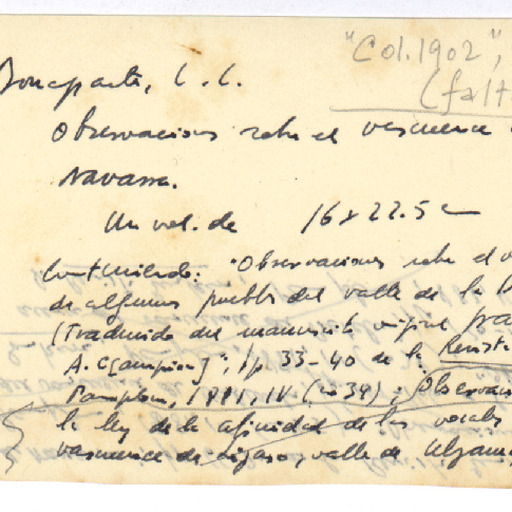 "Col. 1902",
(falt
Bonaparte, L. L.
Observaciones sobre el vascuence
Navarra.
Un vol. de 16 x 22.5 cm
Contenido: "Observaciones sobre el v
de algunos pueblos del valle de la
(Traducido del manuscrito original fra
A. C[ampion]", pp 33-40 de la Revista
Pamplona, 1881, IV (no 34); Observaci
la ley de la afinidad de las vocales
vascuence de Lizaso, valle de Ulzama,